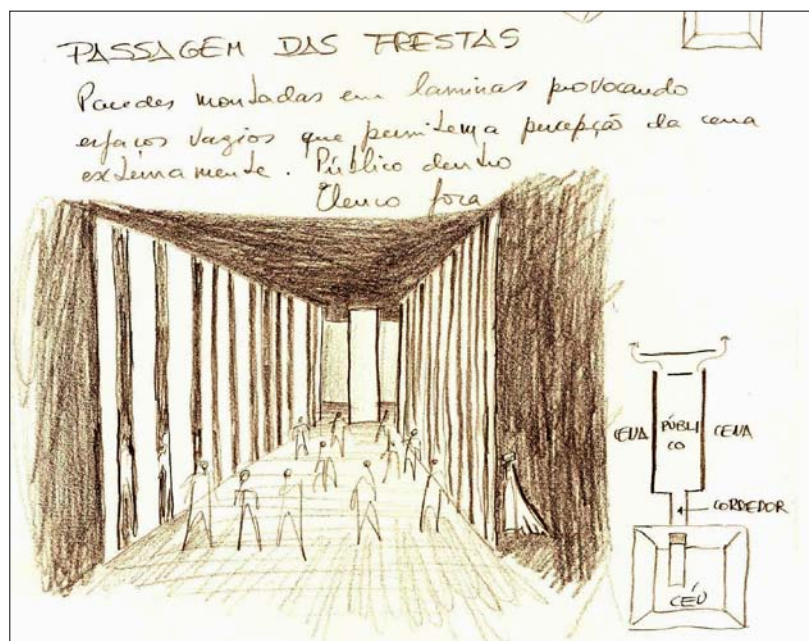 PASSAGEM DAS FRESTAS
Paredes montadas em laminas provocando
espaços vazios que permitem a percepção da cena
externamente. Público dentro
Elenco fora
CENA
PÚBLI
CO
CENA
CORREDOR
CÉU